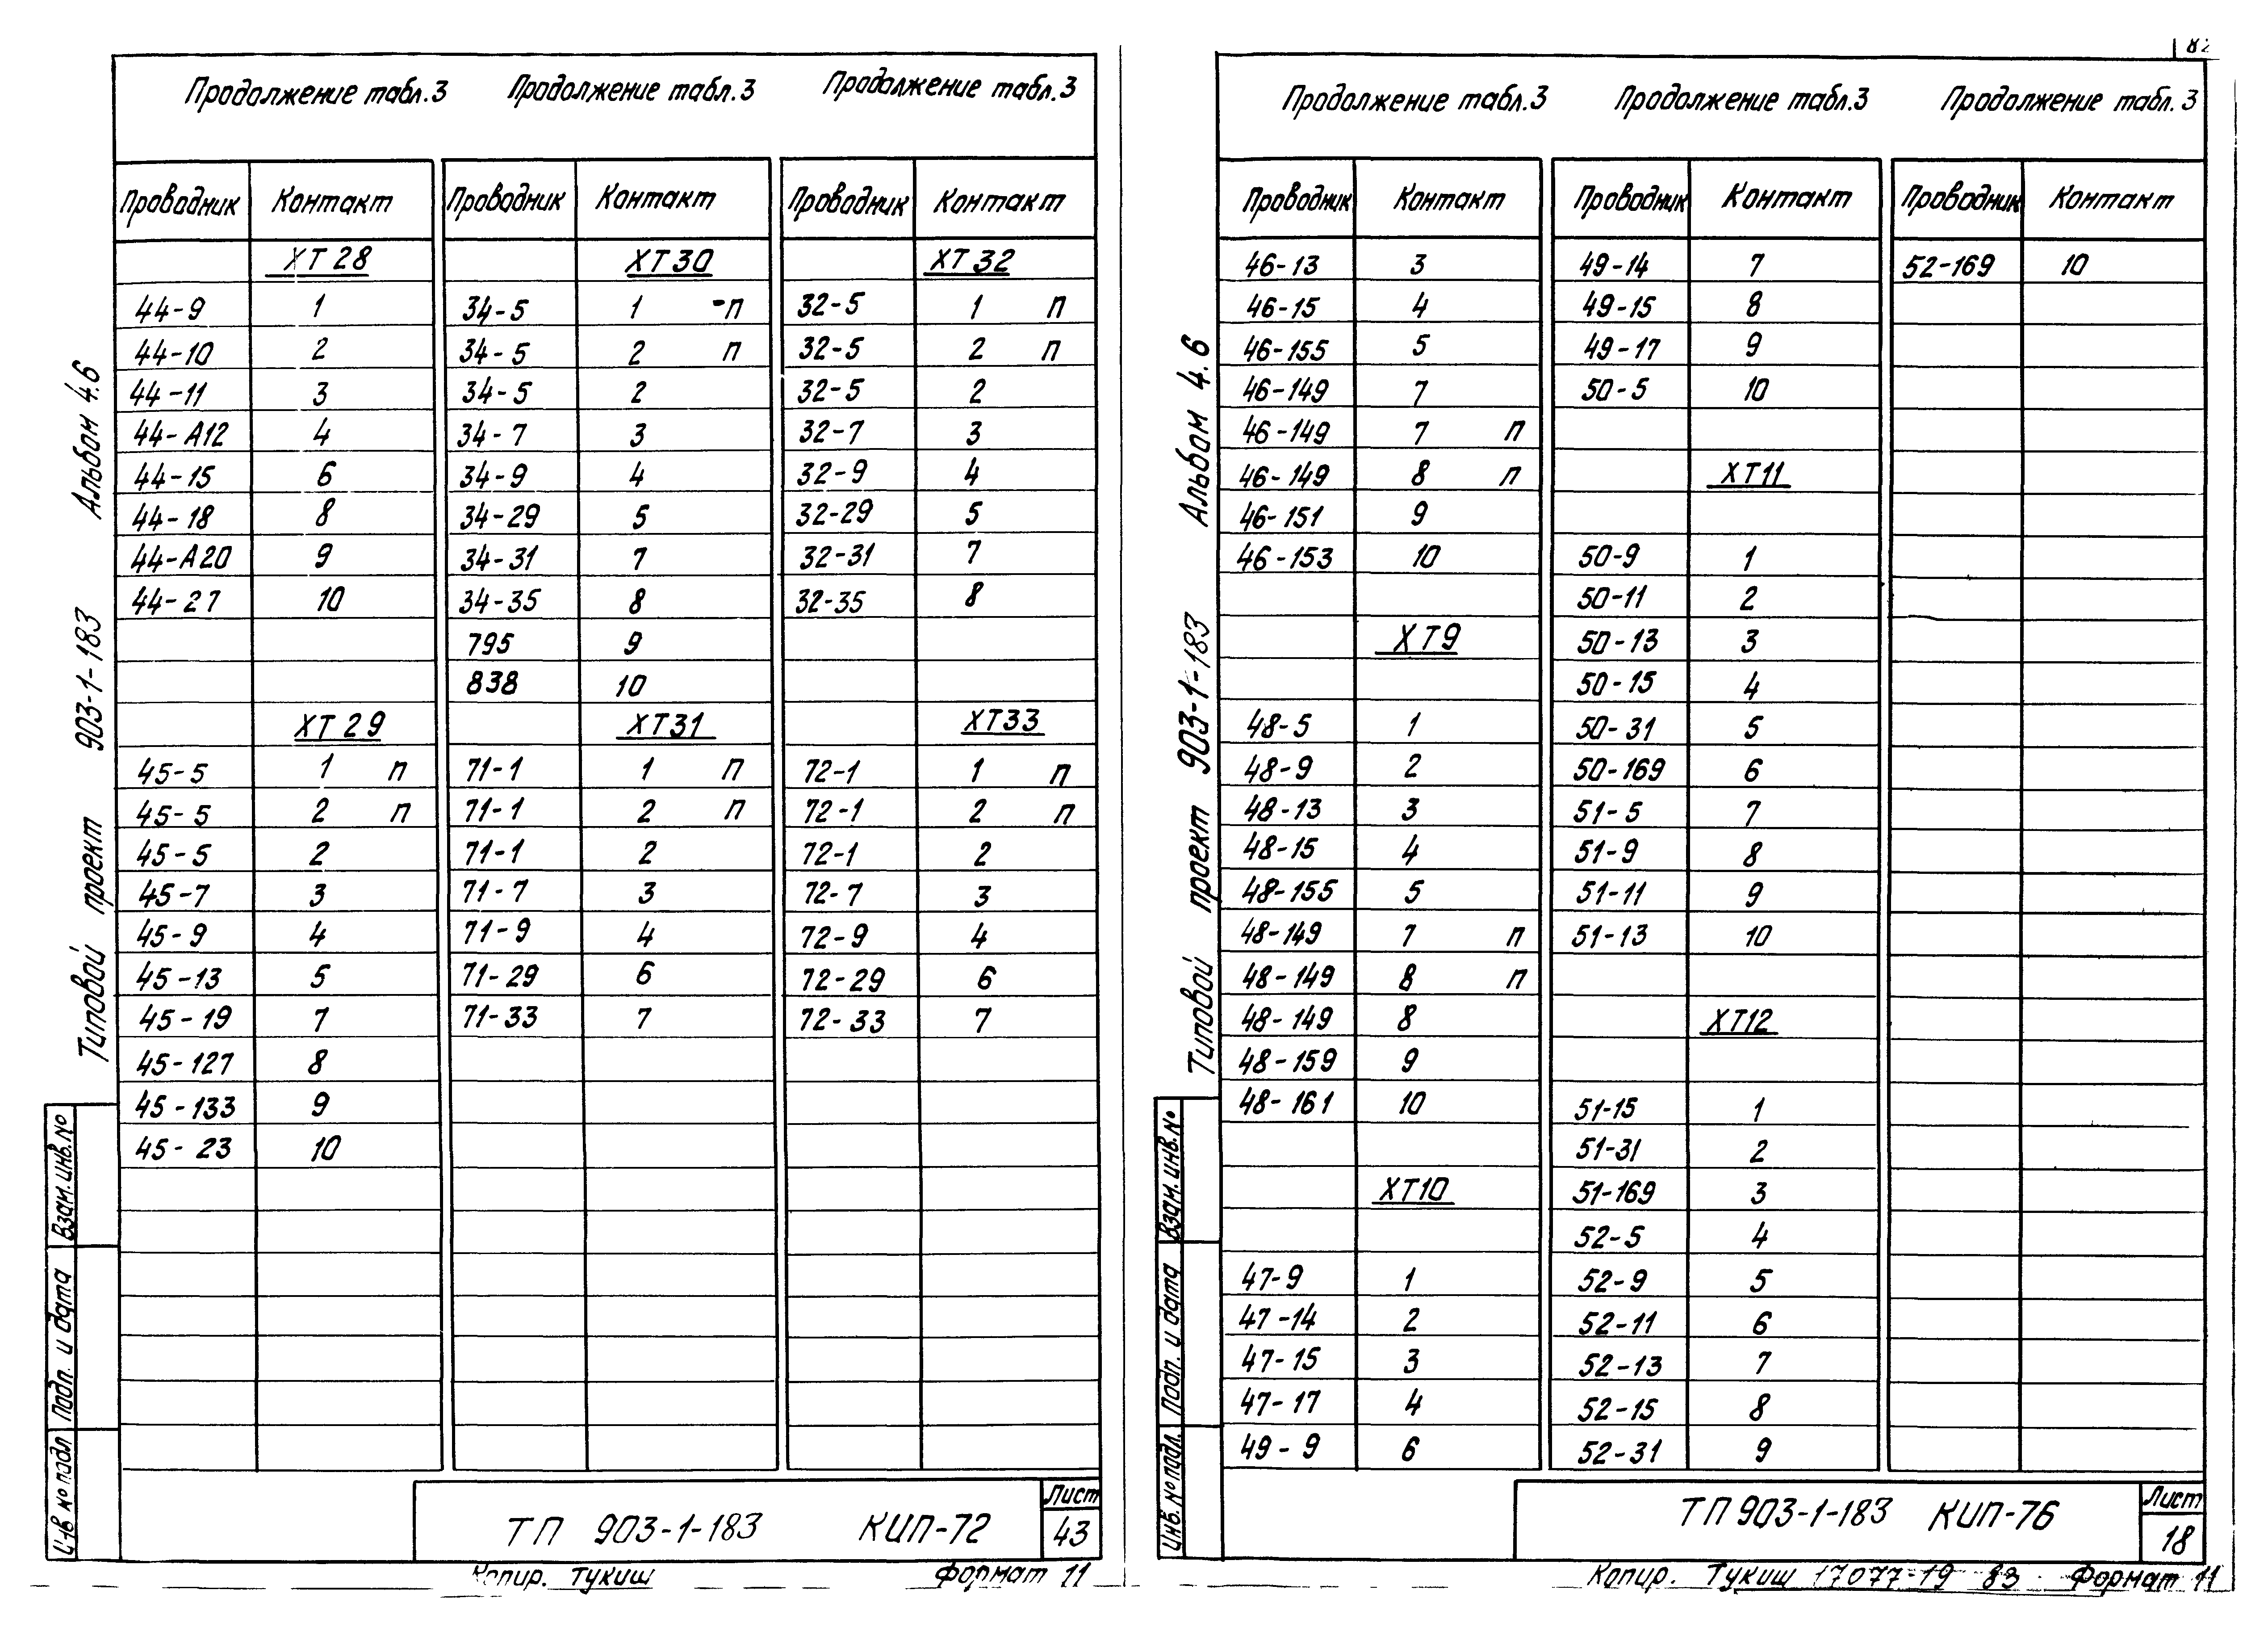 82
Продолжение табл.3 Продолжение табл.3 Продолжение табл.3
Проводник Контакт Проводник Контакт Проводник Контакт
ХТ28 ХТ30 ХТ32
44-9 1 34-5 1 -п 32-5 1 п
44-10 2 34-5 2 п 32-5 2 п
44-11 3 34-5 2 32-5 2
44-А12 4 34-7 3 32-7 3
44-15 6 34-9 4 32-9 4
44-18 8 34-29 5 32-29 5
44-А20 9 34-31 7 32-31 7
44-27 10 34-35 8 32-35 8
795 9
838 10
ХТ29 ХТ31 ХТ33
45-5 1 п 71-1 1 п 72-1 1 п
45-5 2 п 71-1 2 п 72-1 2 п
45-5 2 71-1 2 72-1 2
45-7 3 71-7 3 72-7 3
45-9 4 71-9 4 72-9 4
45-13 5 71-29 6 72-29 6
45-19 7 71-33 7 72-33 7
45-127 8
45-133 9
45-23 10
Альбом 4.6
Типовой проект 903-1-183
Взам. инв. №
Подп. и дата
Инв № подл
ТП 903-1-183 КИП-72
Лист
43
Копир. Тукиш Формат 11
Продолжение табл.3 Продолжение табл.3 Продолжение табл.3
Проводник Контакт Проводник Контакт Проводник Контакт
46-13 3 49-14 7 52-169 10
46-15 4 49-15 8
46-155 5 49-17 9
46-149 7 50-5 10
46-149 7 п
46-149 8 п ХТ11
46-151 9
46-153 10 50-9 1
50-11 2
ХТ9 50-13 3
50-15 4
48-5 1 50-31 5
48-9 2 50-169 6
48-13 3 51-5 7
48-15 4 51-9 8
48-155 5 51-11 9
48-149 7 п 51-13 10
48-149 8 п
48-149 8 ХТ12
48-159 9
48-161 10 51-15 1
51-31 2
ХТ10 51-169 3
52-5 4
47-9 1 52-9 5
47-14 2 52-11 6
47-15 3 52-13 7
47-17 4 52-15 8
49-9 6 52-31 9
Альбом 4.6
Типовой проект 903-1-183
Взам. инв. №
Подп. и дата
Инв. № подл.
ТП 903-1-183 КИП-76
Лист
18
Копир. Тукиш 17077-19 83 Формат 11